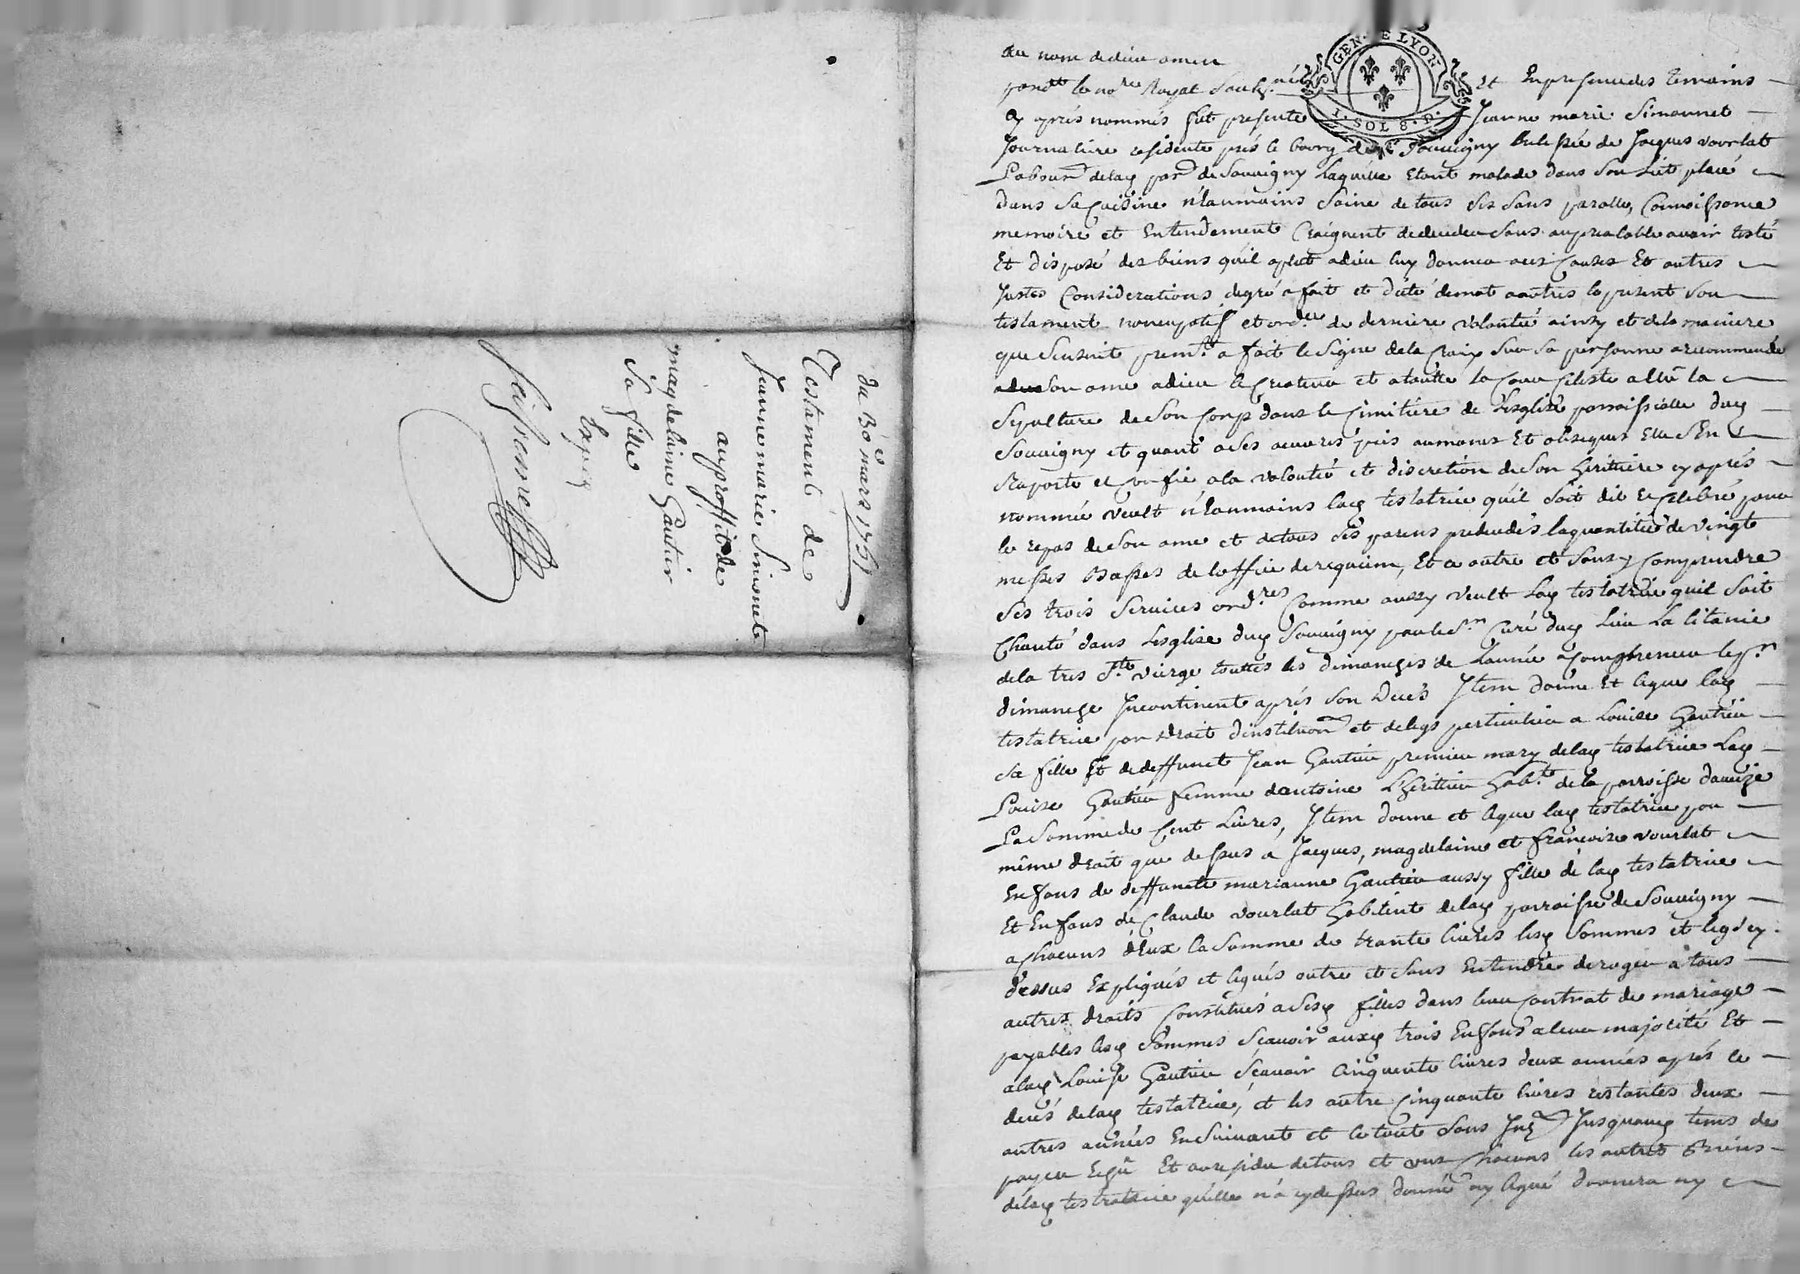 du 13e mars 1751
Testament de
Jeanne marie Simonet
au proffit de
magdelaine Gautier
sa fille
Expié
au nom de dieu amen
GEN. DE LYON
1. SOL 8. D.
pardt le nore Royal Soubs.né et En presence des temoins
cy aprés nommés fut presente Jeanne marie Simonnet
Journaliere residente prés le bourg de Souvigny de Jacques vourlat
Labour delad. parr de Souvigny Laquelle Etant malade dans Son Lit placé
dans Sa Cuisine néaumoins Saine de tous Ses Sans parolle, Connoissance
memoire et Entendement Craignent dedeceder Sans auprealable avoir testé
Et disposé des biens qu'il aplut adieu luy donner a ces Causes Et autres
Justes Considerations degré a fait et dicté demot amotres le present Son
testament noncupatif et ordre de derniere Volonté ainsy et dela maniere
que Sensuit premt a fait le Signe de la Croix Sur Sa personne a recommendé
Son ame adieu le Createur et atoutte la Cour Celeste a la
Sepulture de Son Corps dans le Cimitiére de Lesglise parroissialle dud.
Souvigny et quant a Ses œuvres pies aumones Et obseques Elle S'En
Raporte et Confie ala Volonté et discretion de Son heritiere cy aprés
nommée Veult néaumoins lad. testatrice qu'il Soit dit Et Celebré pour
le repos de Son ame et de tous Ses parens la quantité de Vingt
messes Basses de Loffice de requiem, Et ce outre et Sans y Comprendre
Ses trois Services ordres Comme aussy Veult Lad. testatrice quil Soit
Chanté dans Lesglise dud. Souvigny par le Sr Curé dud. Lieu La litanie
dela tres Ste Vierge touttes les dimanches de Lannée a Commencer le pr
dimanche Incontinent aprés Son deces Item donne Et legue lad.
testatrice par droit dinstitution et de legs perticulier a Louise Gautier
Sa fille Et de deffunct Jean Gautier premier mary delad. testatrice Lad.
Louise Gautier femme dantoine Lheritier habt. de la parroisse
La Somme de Cent Livres, Item donne et legue lad. testatrice par
même droit que dessus a Jacques, magdelaine et francoise vourlat
Enfans de deffuncte marianne Gautier aussy fille de lad. testatrice
Et Enfans de Claude vourlat habitent delad. parroisse de Souvigny
a Chacuns d'Eux la Somme de trante livres lesd. Sommes et legs cy
dessus Expliqués et legués outre et Sans Entendre deroger a tous
autres droits Constitués a Sesd. filles dans leur Contrat de mariage
payables lesd. Sommes Scavoir auxd. trois Enfans a leur majorité Et
alad. Louise Gautier Scavoir Cinquente livres deux années aprés le
deces delad. testatrice, et les autre Cinquante livres restantes deux
autres années Ensuivant et le toute Sans Jusquauxd. tems de
payer Et au residu de tous et uns Chacuns les autres Biens
delad. testatrice qu'elle n'a cy dessus donné ny legué donnera ny